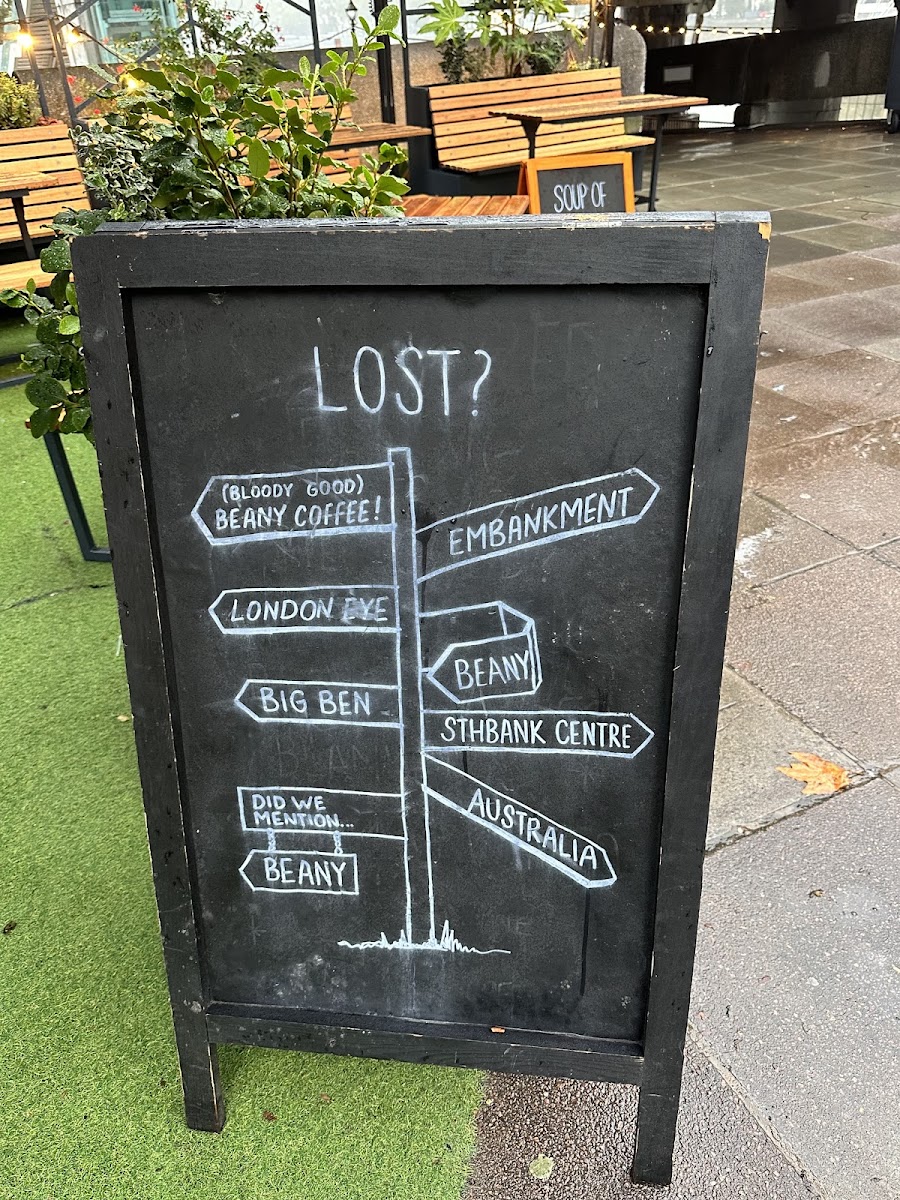 SOUP OF
LOST?
(BLOODY GOOD)
BEANY COFFEE!
EMBANKMENT
LONDON EYE
BEANY
BIG BEN
STHBANK CENTRE
DID WE
MENTION...
BEANY
AUSTRALIA